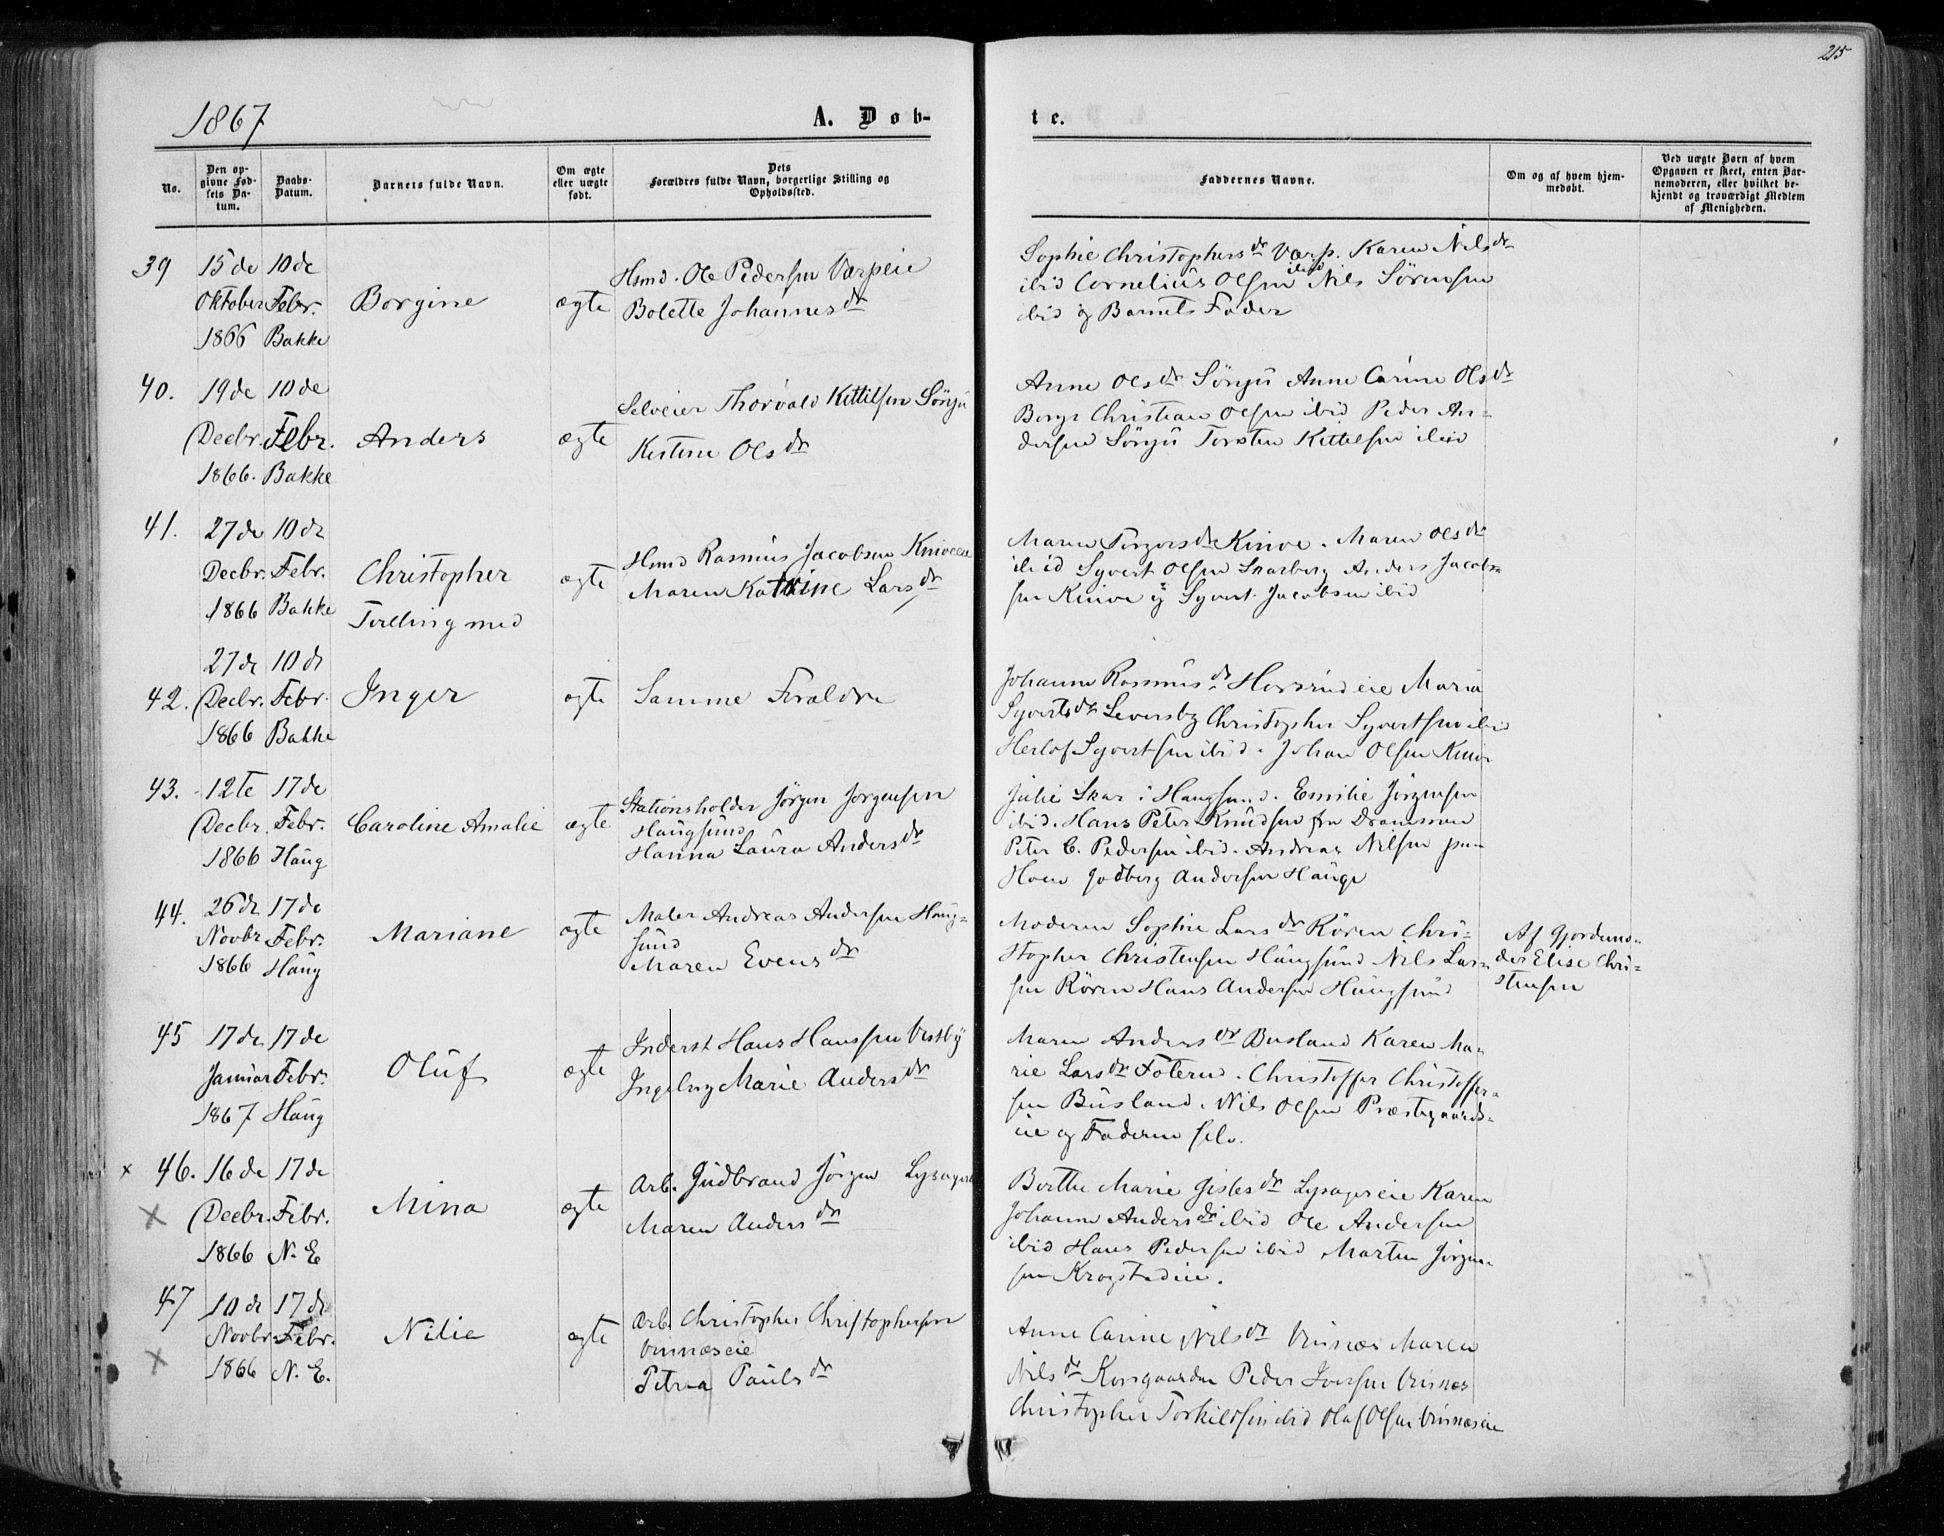 215
1867
A. Døb-
te.
No.
Den op-
givne Fød-
sels Da-
tum.
Daabs-
Datum.
Barnets fulde Navn.
Om ægte
eller uægte
født.
Dets
Forældres fulde Navn, borgerlige Stilling og
Opholdssted.
Faddernes Navne.
Om og af hvem hjem-
medøbt.
Ved uægte Børn af hvem
Opgaven er skeet, enten Bar-
nemoderen, eller hvilket be-
kjendt og troværdigt Medlem
af Menigheden.
39
15de
Oktober
1866
10de
Febr.
Bakke
Borgine
ægte
Hsmd. Ole Pedersen Værpeie
Bolette Johannesdr
Sophie Christophersdr Værp. Karen Nilsdr
ibid Cornelius Olsen ibid Nils Sørensen
ibid og Barnets Fader
40.
19de
Decbr.
1866.
10de
Febr.
Bakke
Anders
ægte
Selveier Thorvald Kittilsen
Kistine Olsdr
Anne Olsdr Anne Carine Olsdr
Berge Christian Olsen ibid Peder An-
dersen Torsten Kittelsen ibid
41.
27de
Decbr.
1866
10de
Febr.
Bakke
Christopher
Tvilling med
ægte
Hsmd Rasmus Jacobsen Kniveeie
Maren Katrine Larsdr
Maren Torgersdr Knive. Maren Olsdr
ibid Syvert Olsen Skarberg Anders Jacob-
sen Knive og Syvert Jacobsen ibid
42.
27de
Decbr.
1866
10de
Febr.
Bakke
Inger
ægte
Samme Foraldre
Johanne Rasmusdr Horsrudeie Maria
Syvertsdr Leversby Christopher Syvertsen ibid
Herlof Syvertsen ibid. Johan Olsen Knive
43.
12te
Decbr
1866
17de
Febr.
Haug
Caroline Amalie
ægte
Stationsholder Jørgen Jørgensen
Haugsund
Hanna Laura Andersdr
Julie Skar i Haugsund. Emilie Jørgensen
ibid. Hans Peter Knudsen fra Drammen
Peter C. Pedersen ibid. Andreas Nilsen
Hoen Godberg Andersen Hauge
44.
26de
Novbr
1866
17de
Febr.
Haug
Mariane
ægte
Maler Andreas Andersen Haug-
sund
Maren Evensdr
Moderen Sophie Larsdr Røren Chri-
stopher Christensen Haugsund Nils Lar-
sen Røren Hans Andersen Haugsund
Af Gjordemo-
der Elise Chri-
stensen
45
17de
Januar
1867
17de
Febr.
Haug
Oluf
ægte
Inderst Hans Hanssen Vestby
Ingeborg Marie Andersdr
Maren Andersdr Busland Karen Ma-
rie Larsdr Foteren. Christoffer Christoffer-
sen Busland. Nils Olsen Præstegaards-
eie og Faderen selv.
× 46.
×
16de
Decbr.
1866
17de
Febr.
N. E
Mina
ægte
Arb. Gudbrand Jørgen Lysager
Maren Andersdr
Berthe Marie Gislesdr Lysagereie Karen
Johanne Andersdr ibid Ole Andersen
ibid Hans Pedersen ibid Martin Jørgen-
sen Krogstadeie.
47
×
10de
Novbr.
1866
17de
Febr.
N. E.
Nilie
ægte
Arb. Christopher Christophersen
Vinnæseie
Petrea Paulsdr
Anne Carine Nilsdr Vinnæs Maren
Nilsdr Korsgaarden Peder Iversen Vinnæs
Christopher Torkildsen ibid Olaf Olsen Vinnæseie